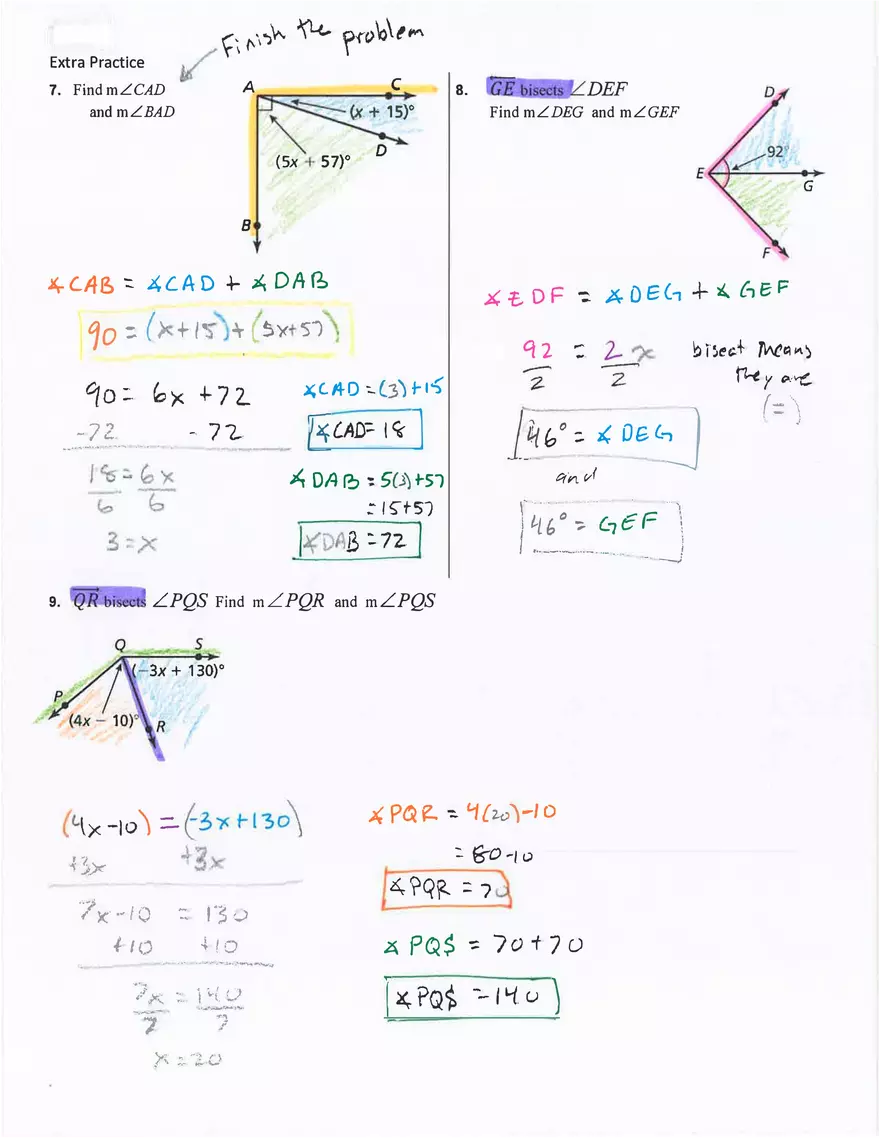 Finish the problem
Extra Practice
7. Find m∠CAD
and m∠BAD
A
C
(x + 15)°
D
(5x + 57)°
B
∡CAB = ∡CAD + ∡DAB
90 = (x+15)+(5x+57)
90 = 6x +72
-72 - 72
18 = 6x
6 6
3 = x
∡CAD = (3)+15
∡CAD = 18
∡DAB = 5(3)+57
= 15+57
∡DAB = 72
8. GE bisects ∠DEF
Find m∠DEG and m∠GEF
D
92°
E
G
F
∡EDF = ∡DEG + ∡GEF
92 = 2x
2 2
bisect means
they are
(=)
46° = ∡DEG
and
46° = GEF
9. QR bisects ∠PQS Find m∠PQR and m∠PQS
Q
S
(−3x + 130)°
P
(4x − 10)°
R
(4x-10) = (-3x+130)
+3x +3x
7x-10 = 130
+10 +10
7x = 140
7 7
x = 20
∡PQR = 4(20)-10
= 80-10
∡PQR = 70
∡PQS = 70+70
∡PQS = 140